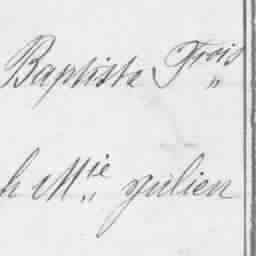 Baptiste Frois
h Mie Julien